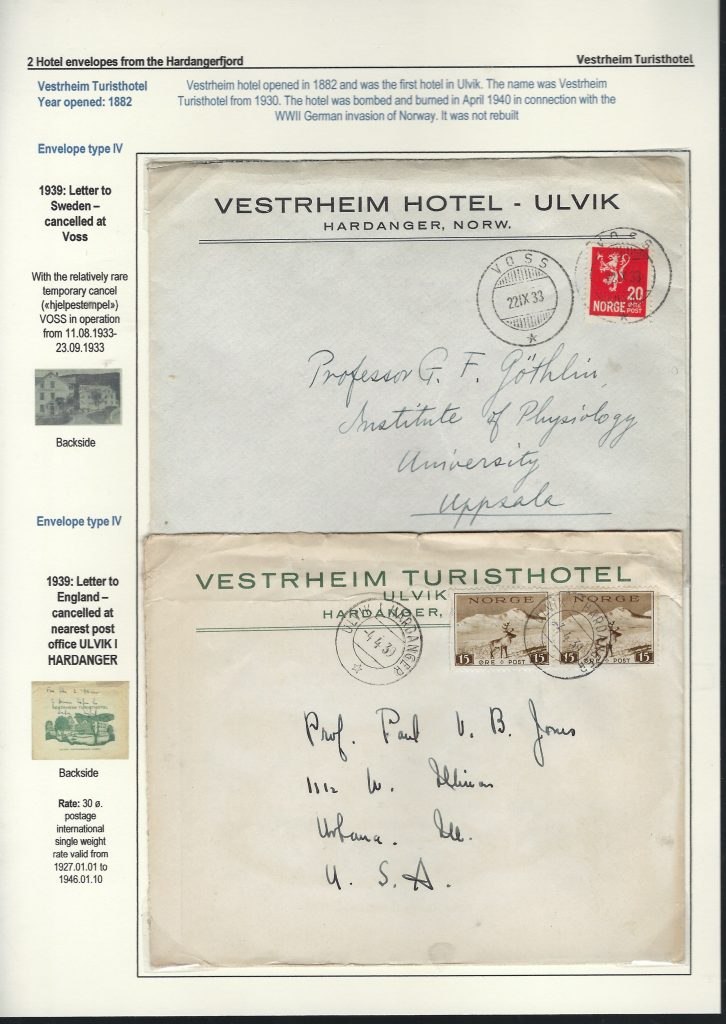 2 Hotel envelopes from the Hardangerfjord
Vestrheim Turisthotel
Vestrheim Turisthotel
Year opened: 1882
Vestrheim hotel opened in 1882 and was the first hotel in Ulvik. The name was Vestrheim
Turisthotel from 1930. The hotel was bombed and burned in April 1940 in connection with the
WWII German invasion of Norway. It was not rebuilt
Envelope type IV
1939: Letter to
Sweden –
cancelled at
Voss
With the relatively rare
temporary cancel
(«hjelpestempel»)
VOSS in operation
from 11.08.1933-
23.09.1933
Backside
VESTRHEIM HOTEL - ULVIK
HARDANGER, NORW.
VOSS
22IX 33
VOSS
20
NORGE ØRE
POST
Professor G. F. Göthlin
Institute of Physiology
University
Uppsala
Envelope type IV
1939: Letter to
England –
cancelled at
nearest post
office ULVIK I
HARDANGER
VESTRHEIM TURISTHOTEL
Backside
Rate: 30 ø.
postage
international
single weight
rate valid from
1927.01.01 to
1946.01.10
VESTRHEIM TURISTHOTEL
ULVIK
HARDANGER,
ULVIK I HARDANGER
-4.4.39
NORGE
15 ØRE POST 15
NORGE
15 ØRE POST 15
Prof. Paul V. B. Jones
1112 W. Illinois
Urbana. Ill.
U. S. A.